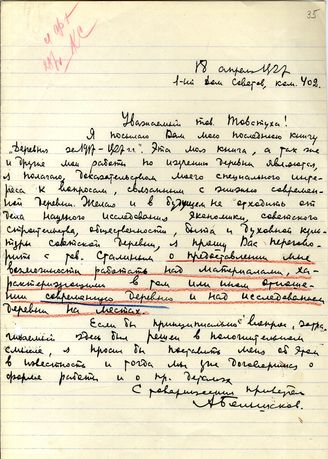 35
18 апреля 1927
1-ый Дом Советов, ком. 402.
Уважаемый тов. Товстуха!
Я посылаю Вам мою последнюю книгу
„Деревня 1917-1927 г." Эта моя книга, а так же
и другие мои работы по изучению деревни являются,
я полагаю, доказательством моего специального инте-
реса к вопросам, связанным с жизнью современ-
ной деревни. Желая и в будущем не отходить от
дела научного исследования экономики, советского
строительства, общественности, быта и духовной куль-
туры советской деревни, я прошу Вас перегово-
рить с тов. Сталиным о предоставлении мне
возможности работать над материалами, ха-
рактеризующими в том или ином отноше-
нии современную деревню и над исследованием
деревни на местах.
Если бы принципиально вопрос, затра-
гиваемый здесь был решен в положительном
смысле, я просил бы поставить меня об этом
в известность и тогда мы уже договоримся о
форме работы и о пр. деталях
С товарищеским приветом